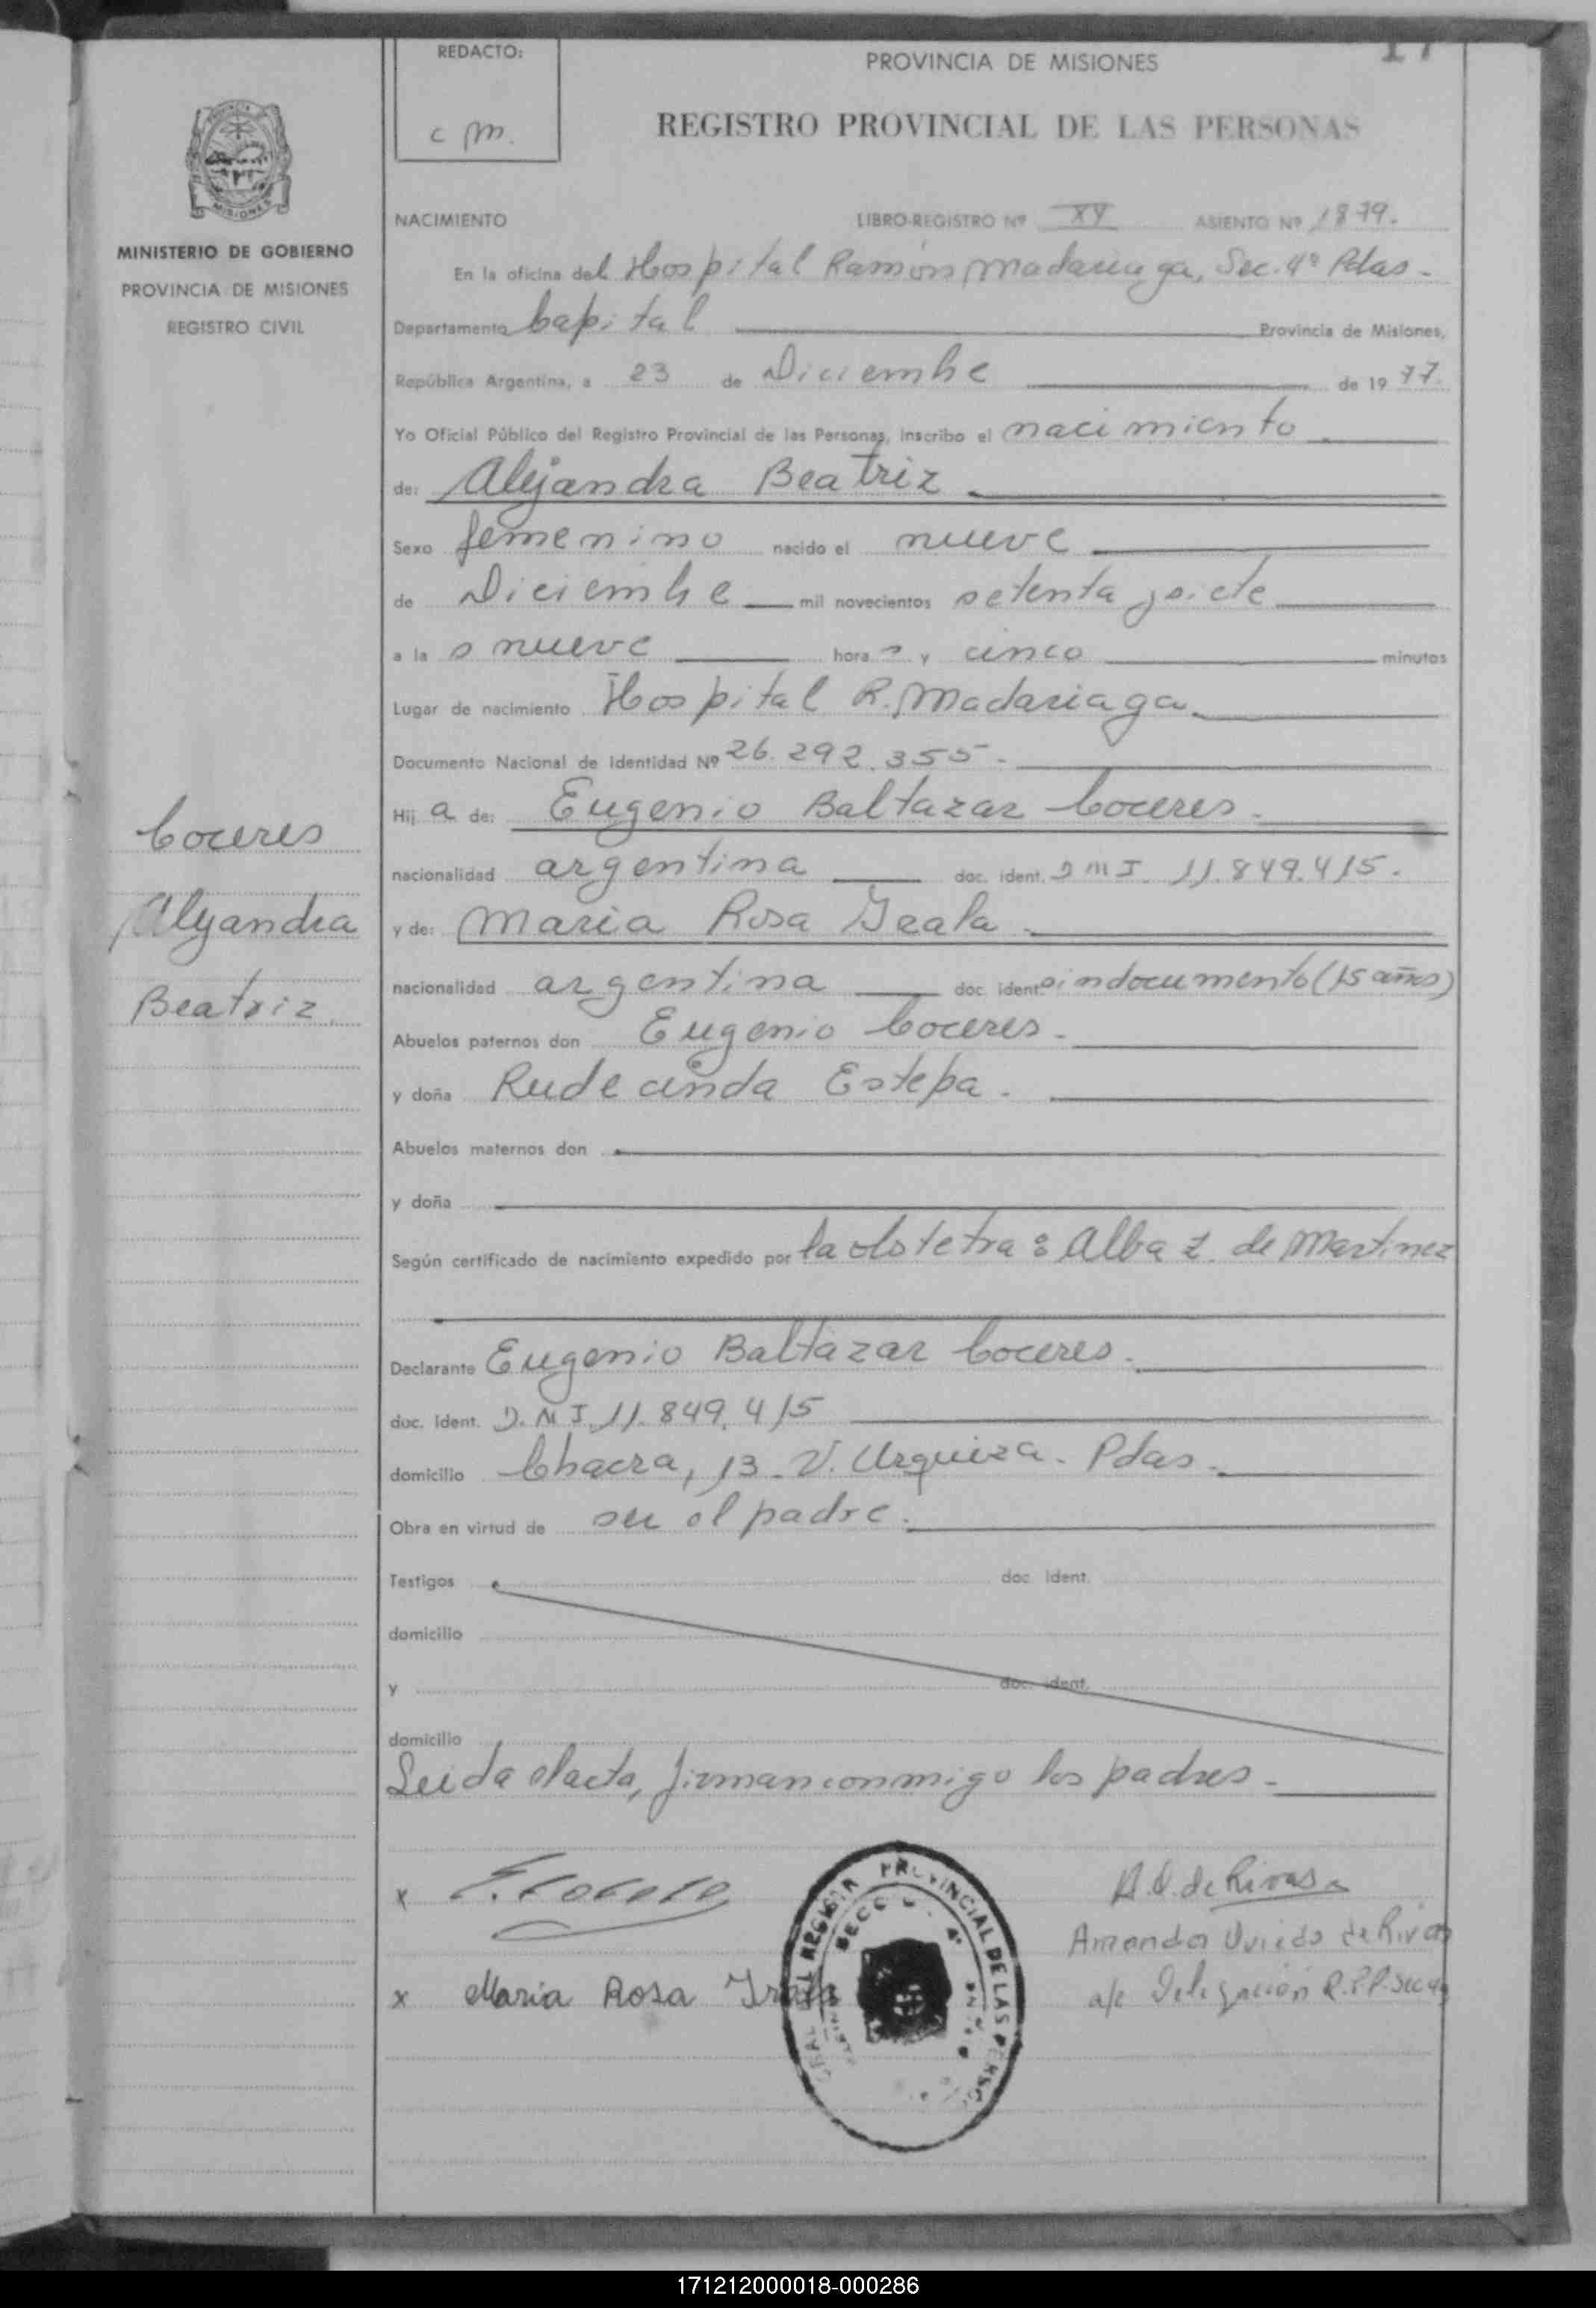 REDACTO:
c m.
PROVINCIA DE MISIONES
17
REGISTRO PROVINCIAL DE LAS PERSONAS
MISIONES
MINISTERIO DE GOBIERNO
PROVINCIA DE MISIONES
REGISTRO CIVIL
NACIMIENTO LIBRO-REGISTRO Nº XV ASIENTO Nº 1879.
En la oficina del Hospital Ramón Madariaga, Sec. 4º Pdas.-
Departamento Capital Provincia de Misiones,
República Argentina, a 23 de Diciembre de 19 77.
Yo Oficial Público del Registro Provincial de las Personas, inscribo el nacimiento
de: Alejandra Beatriz
Sexo femenino nacido el nueve
de Diciembre mil novecientos setenta y siete
a la s nueve hora s y cinco minutos
Lugar de nacimiento Hospital R. Madariaga
Documento Nacional de Identidad Nº 26.292.355-
Hij a de: Eugenio Baltazar Coceres
nacionalidad argentina doc. ident. D M I. 11.849.415.
y de: Maria Rosa Irala
nacionalidad argentina doc. ident. sin documento (15 años)
Abuelos paternos don Eugenio Coceres-
y doña Rudecinda Estepa.
Abuelos maternos don
y doña
Según certificado de nacimiento expedido por la obstetra: Alba Z. de Martinez
Declarante Eugenio Baltazar Coceres.
doc. ident. D. M I. 11.849.415
domicilio Chacra, 13- V. Urquiza. Pdas.
Obra en virtud de ser el padre.
Testigos doc. ident.
domicilio
y doc. ident.
domicilio
Leida el acta, firman conmigo los padres-
Coceres
Alejandra
Beatriz
x E. Coceres
x Maria Rosa Irala
PROVINCIAL DE LAS PERSO
A. O. de Rivas
Amanda Oviedo de Rivas
a/c Delegación R.P.P. Sec 4ª
171212000018-000286